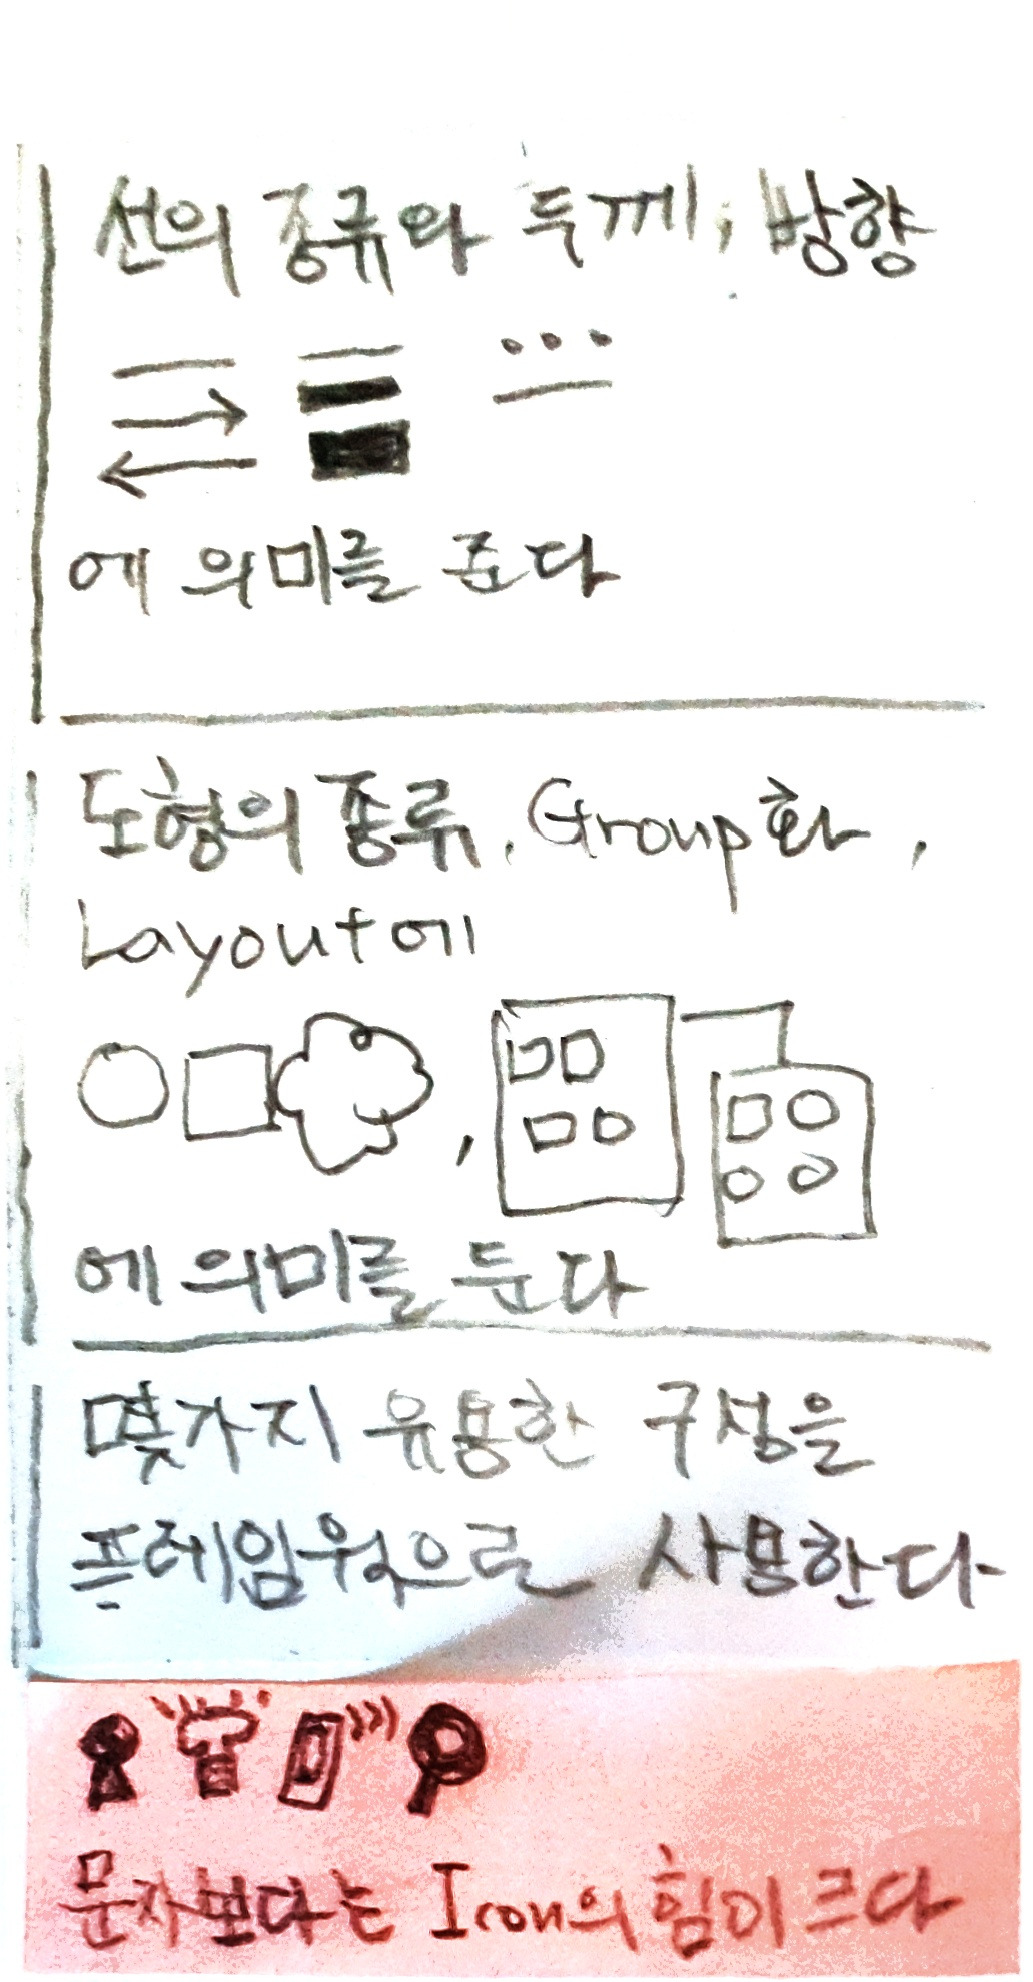 선의 종류와 두께, 방향
에 의미를 준다
도형의 종류, Group화,
Layout에
에 의미를 둔다
몇가지 유용한 구성을
프레임웍으로 사용한다
문자보다는 Icon의 힘이 크다